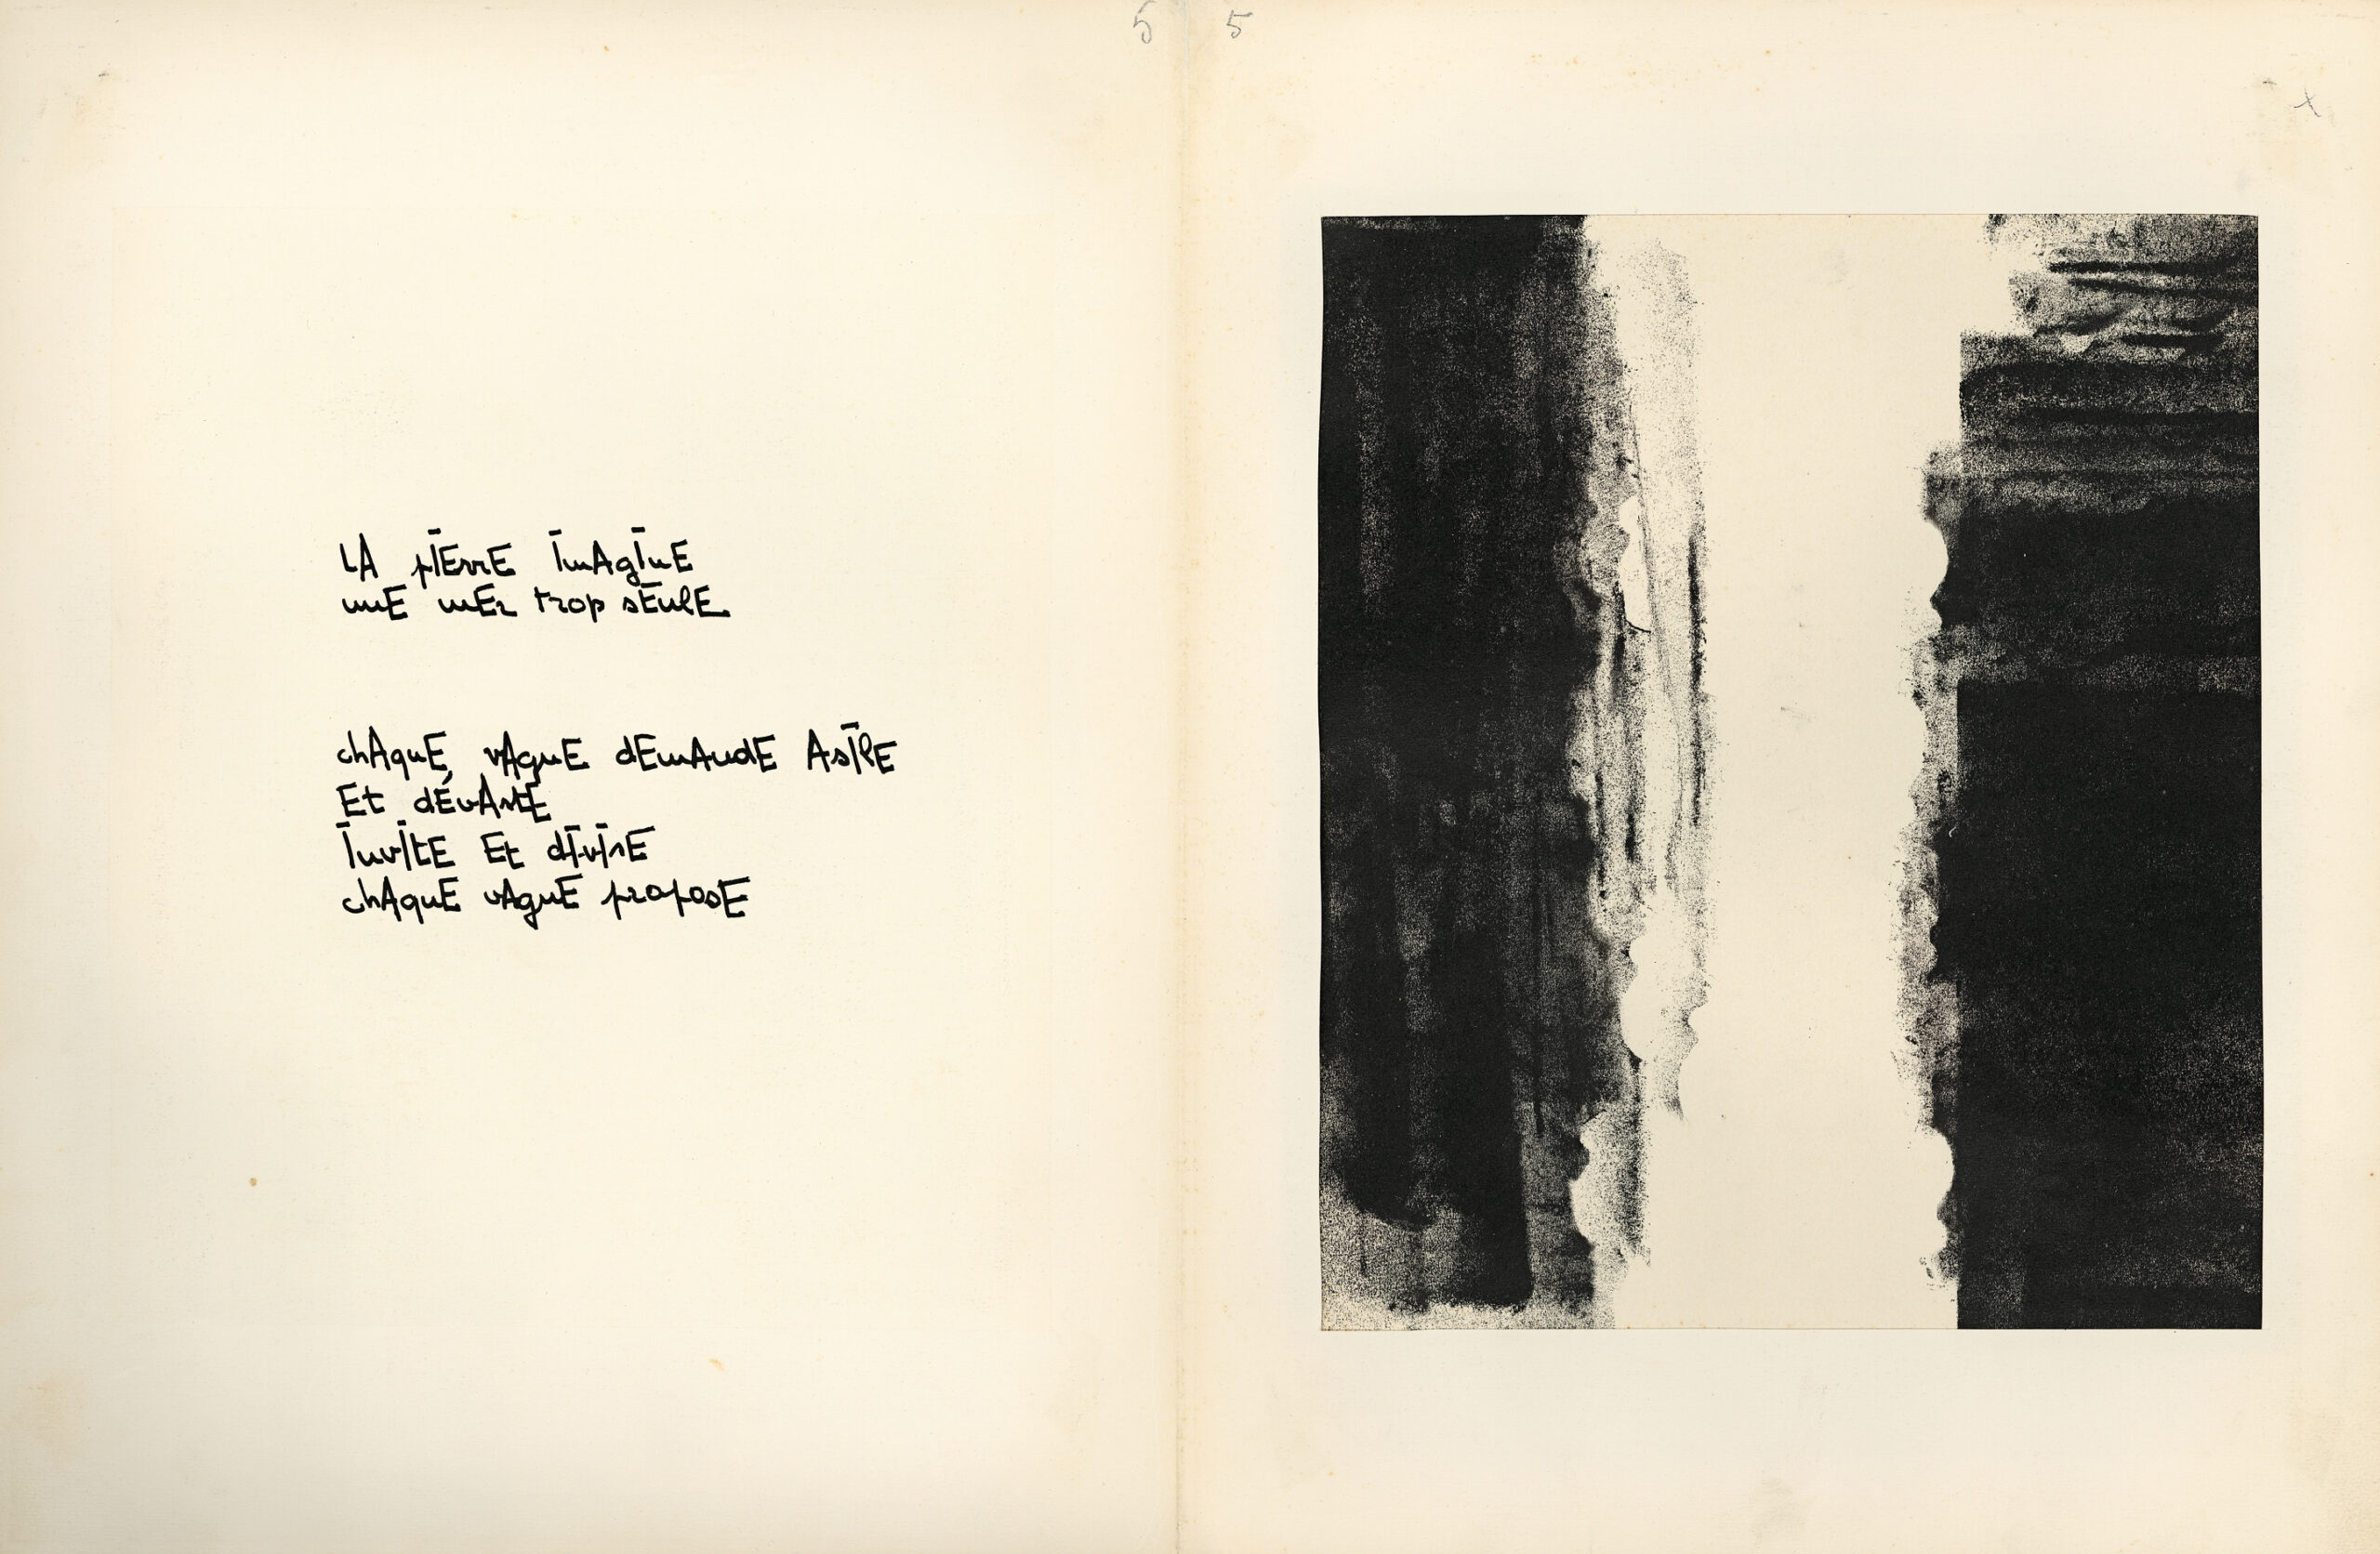 5 5
x
LA pIErrE ImAgInE
unE mEr trop sEulE
chAquE vAguE dEmAndE AsIlE
Et dÉvAstE
InvItE Et dIvIsE
chAquE vAguE proposE